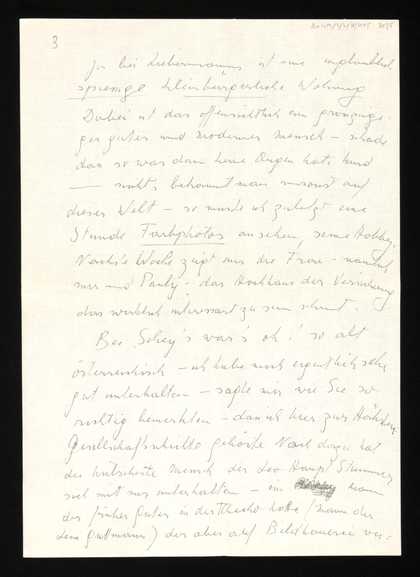 3
Ja bei Liebermanns ist eine unglaublich
spiessige kleinbürgerliche Wohnung
Dabei ist das offensichtlich ein grosszügi-
ger guter und moderner Mensch – schade
das so was dann keine Augen hat. Und
— nichts bekommt man umsonst auf
dieser Welt – so musste ich zuletzt eine
Stunde Farbphotos ansehen, seine Hobby.
Nächste Woche zeigt mir die Frau – nämlich
mir und Pauly – das Hochhaus der Versicherung
das wirklich interessant zu sein scheint.
Bei Schey's war's oh! so alt
österreichisch – ich habe mich eigentlich sehr
gut unterhalten – sagte mir wie Sie so
richtig bemerkten – dass ich hier zur Höchsten
Gesellschaftsschichte gehörte. Noch dazu hat
der Mensch der
sich mit mir unterhalten – ein Mann
der früher Güter in der hatte (Mann der
) der aber auf ver-